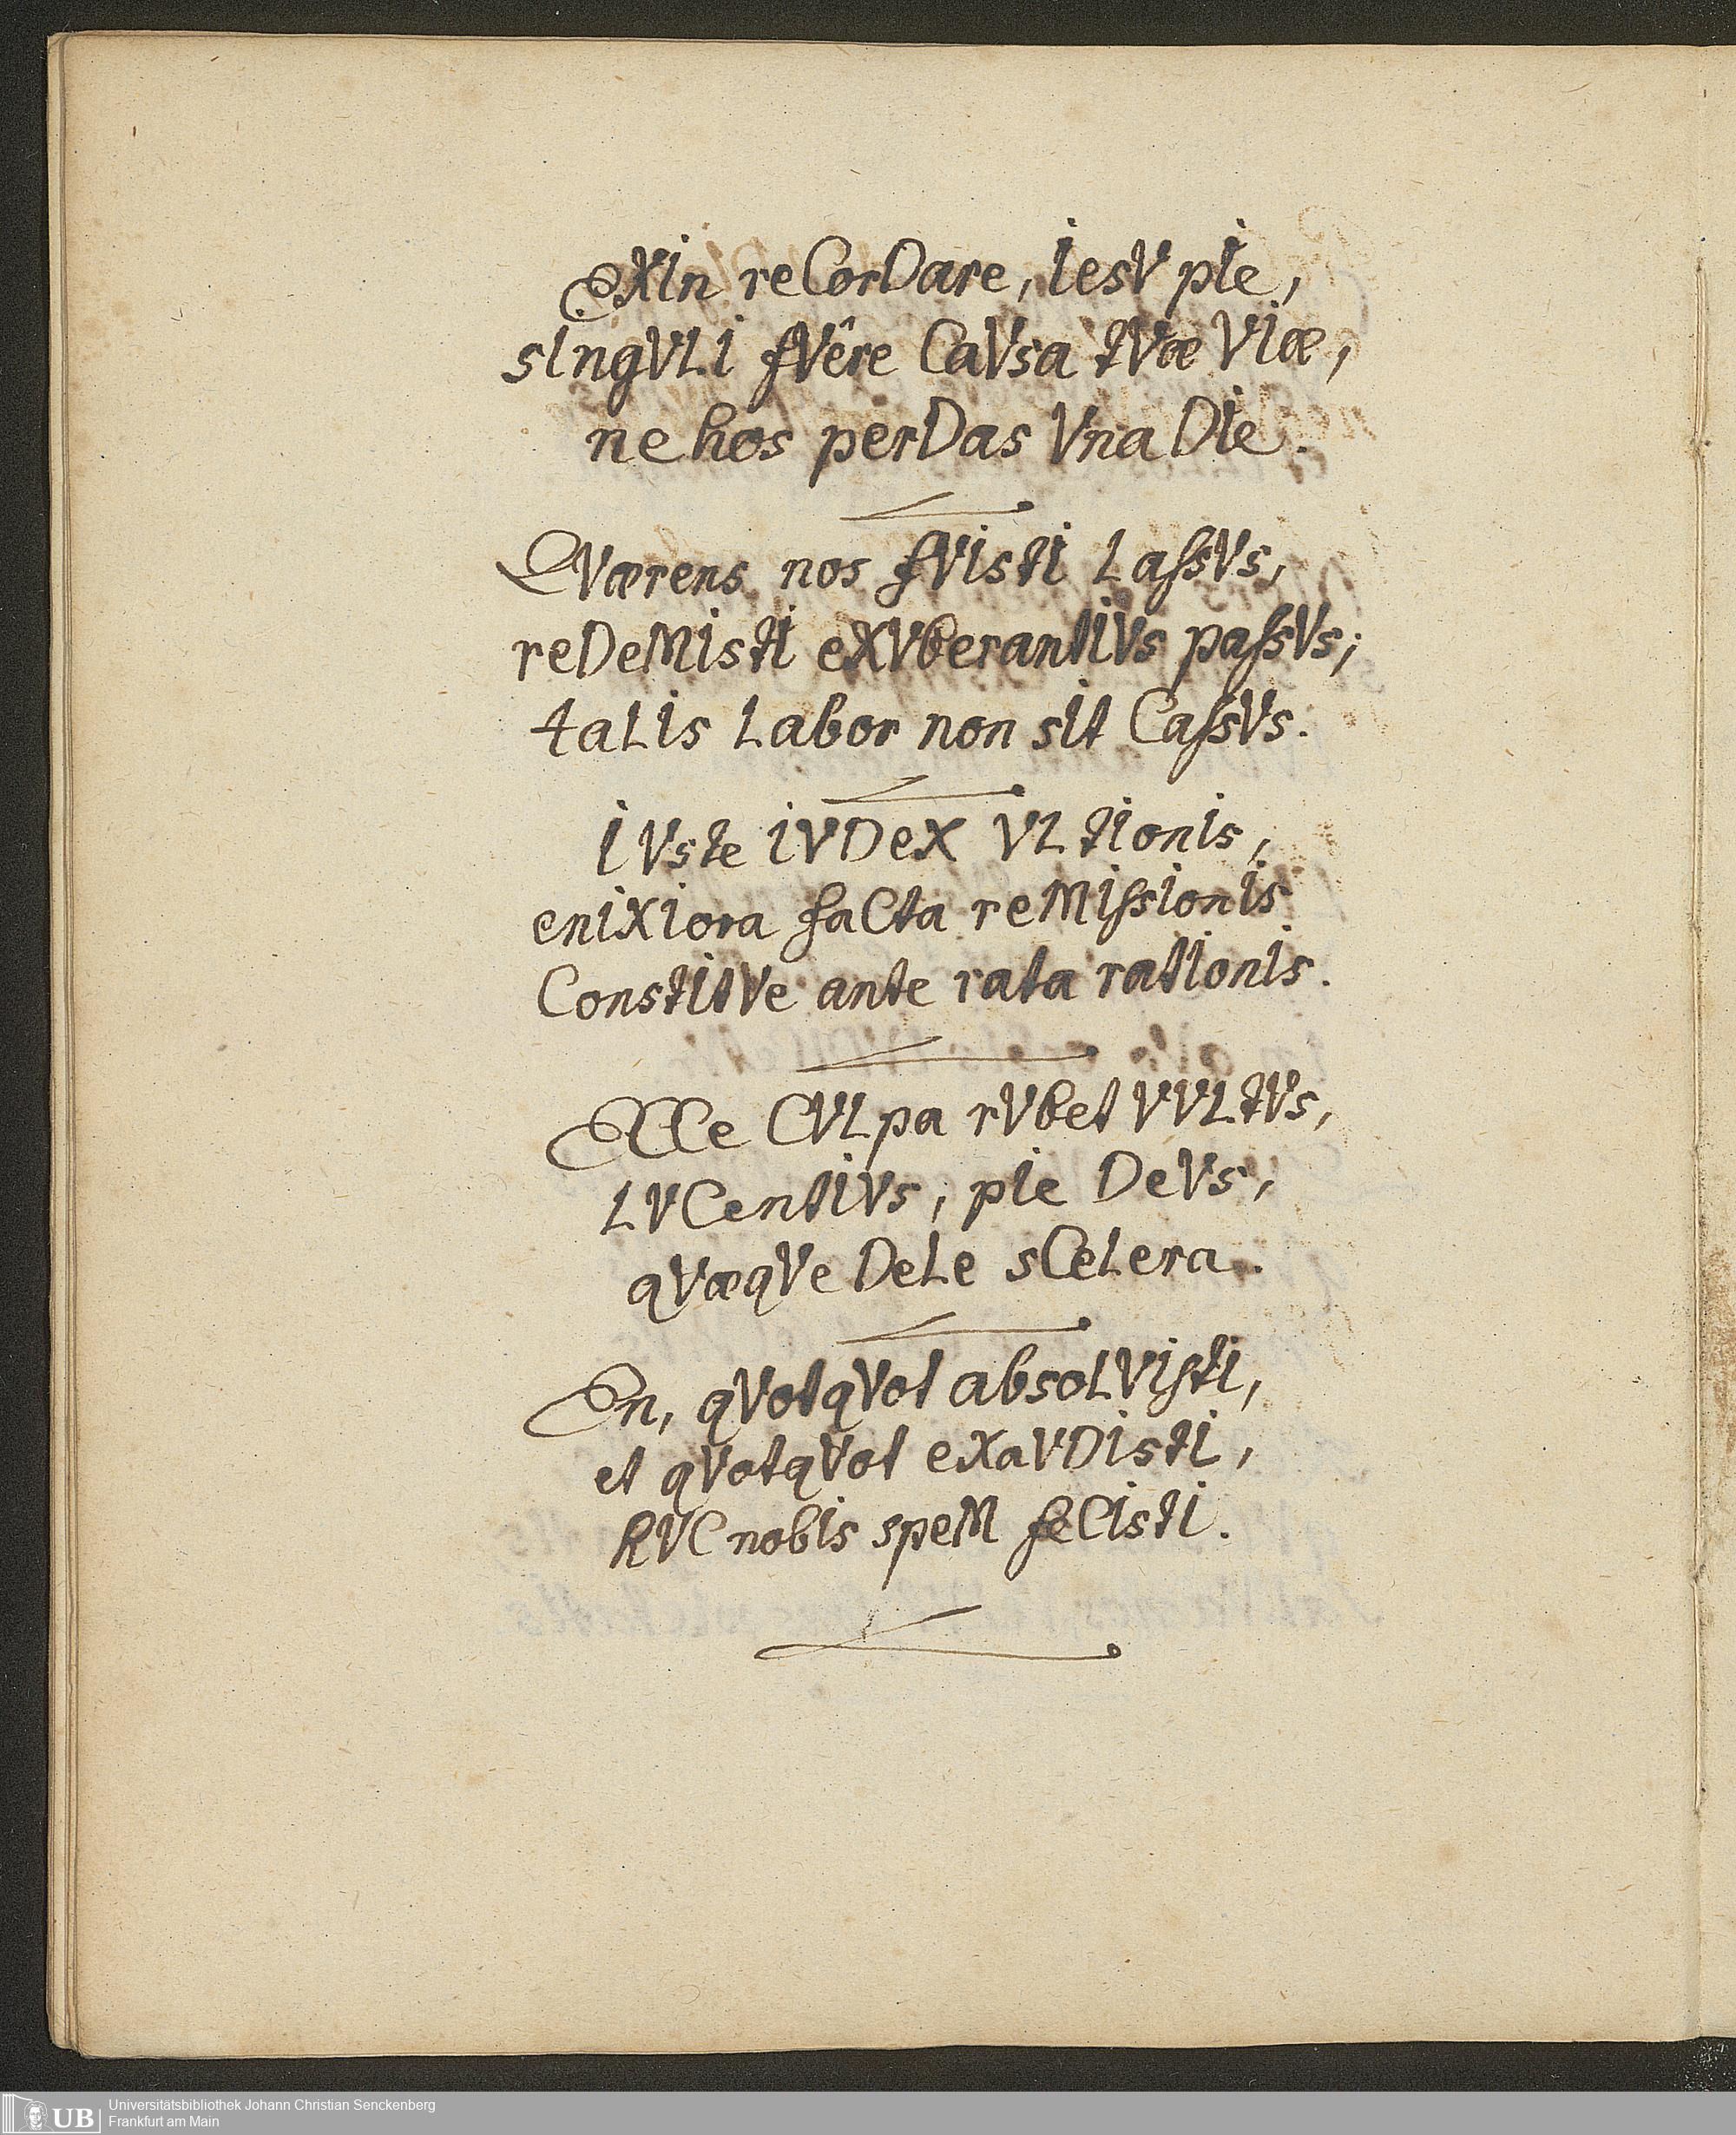 EXIn reCorDare, IesV pIe,
sIngVLI fVêre CaVsa tVæ VIæ,
ne hos perDas Vna DIe.
QVærens nos fVIstI LaſsVs,
reDeMIstI eXVberantIVs paſsVs;
taLIs Labor non sIt CaſsVs.
IVste IVDeX VLtIonIs,
enIXIora faCta reMIſsIonIs
ConstItVe ante rata ratIonIs.
ECCe CVLpa rVbet VVLtVs,
LVCentIVs, pIe DeVs,
qVæqVe DeLe sCeLera.
En, qVotqVot absoLVIſtI,
et qVotqVot eXaVDIstI,
hVC nobIs speM feCIstI.
UB
Universitätsbibliothek Johann Christian Senckenberg
Frankfurt am Main